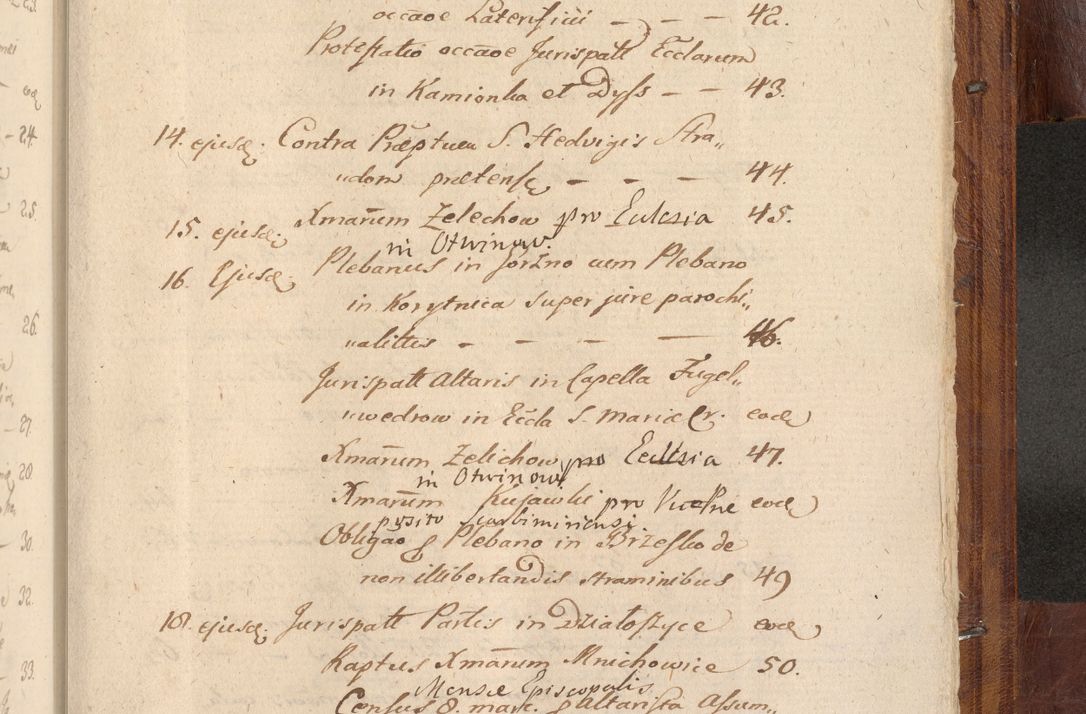 occãoe Laterifiiii — — — 42.
Protestatio occãoe Jurispatt Ecclarum
in Kamionka et Dyss — — 43.
14. ejusd. Contra Præptuum S. Hedvigis Stra„
„dom prætensæ — — — 44.
15. ejusd. Xmarum Zelechow pro Eulesia 45.
in Otwinow.
16. Ejusd. Plebanus in Gorzno cum Plebano
in Korytnica super jure parochi„
„alittis — — — — 46.
Jurispatt Altaris in Capella Fugel„
„wedrow in Eccla S. Mariæ Cr. eod
Xmarum Zelichow pro Ecclesia 47.
in Otwinow.
Xmarum Kujawski pro eod
Scarbimiriensi
Obligão Plebano in Brzesko de
non illiberlandis straminibus 49
18. ejusd. Jurispatt Partis in Działoszyce eod
Raptus Xmarum Mnichowice 50.
Mensæ Episcopalis
Census 8. marc. Altarista Assum„